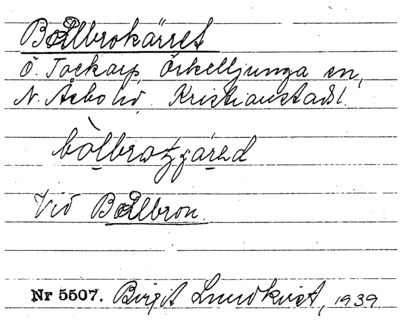 Bollbrokärret
Ö. Tockarp, Örkelljunga sn,
N. Åsbo hd. Kristianstads l.
Vid Bollbron.
Nr 5507. Birgit Lundkvist, 1939